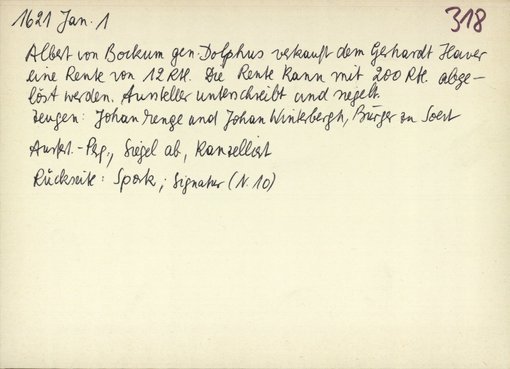 1621 Jan. 1
318
Albert von Bockum gen. Dolphus verkauft dem Gerhardt Haver
eine Rente von 12 Rtl. Die Rente kann mit 200 Rtl. abge-
löst werden. Aussteller unterschreibt und siegelt.
Zeugen: Johan Menge und Johan Winkbergh, Bürger zu Soest
Ausf.-Perg., Siegel ab, kanzelliert
Rückseite: Spork; Signatur (N. 10)